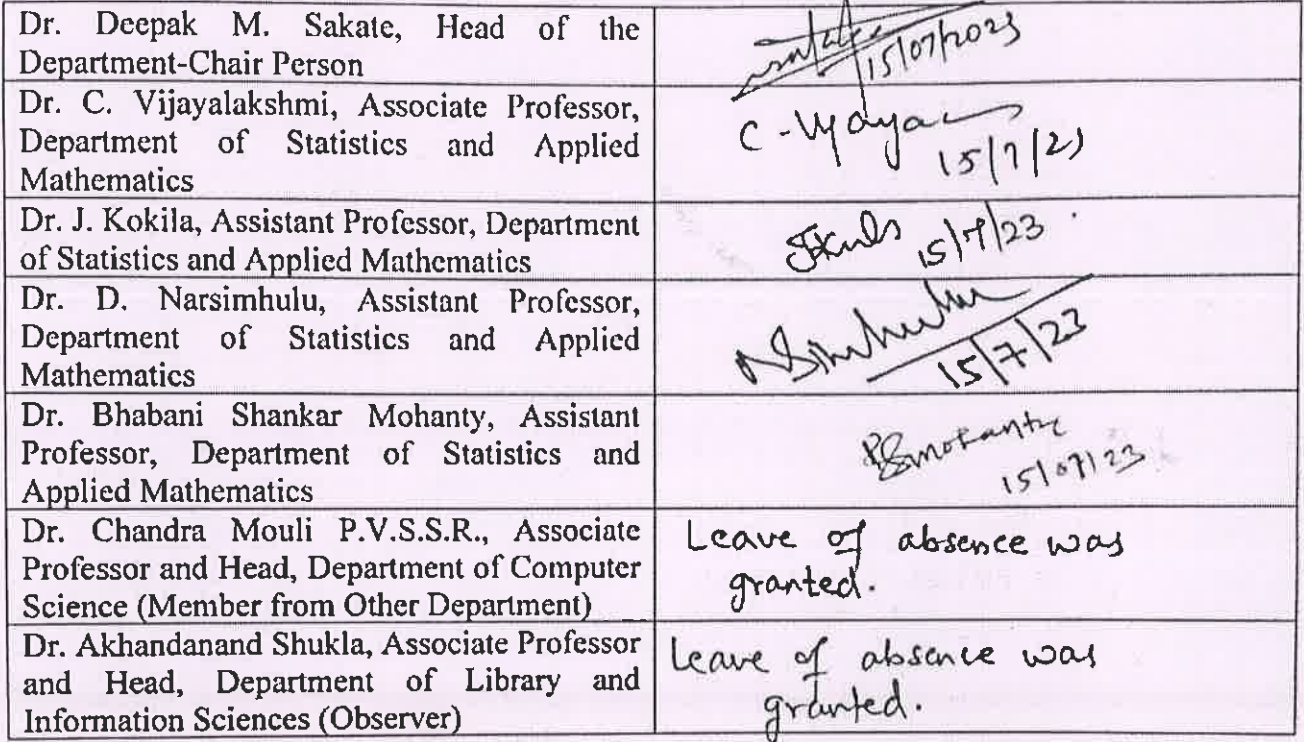 Dr. Deepak M. Sakate, Head of the
Department-Chair Person
15/07/2023
Dr. C. Vijayalakshmi, Associate Professor,
Department of Statistics and Applied
Mathematics
C - Vijaya
15/7/23
Dr. J. Kokila, Assistant Professor, Department
of Statistics and Applied Mathematics
15/7/23
Dr. D. Narsimhulu, Assistant Professor,
Department of Statistics and Applied
Mathematics
15/7/23
Dr. Bhabani Shankar Mohanty, Assistant
Professor, Department of Statistics and
Applied Mathematics
BSMohanty
15/07/23
Dr. Chandra Mouli P.V.S.S.R., Associate
Professor and Head, Department of Computer
Science (Member from Other Department)
Leave of absence was
granted.
Dr. Akhandanand Shukla, Associate Professor
and Head, Department of Library and
Information Sciences (Observer)
Leave of absence was
granted.